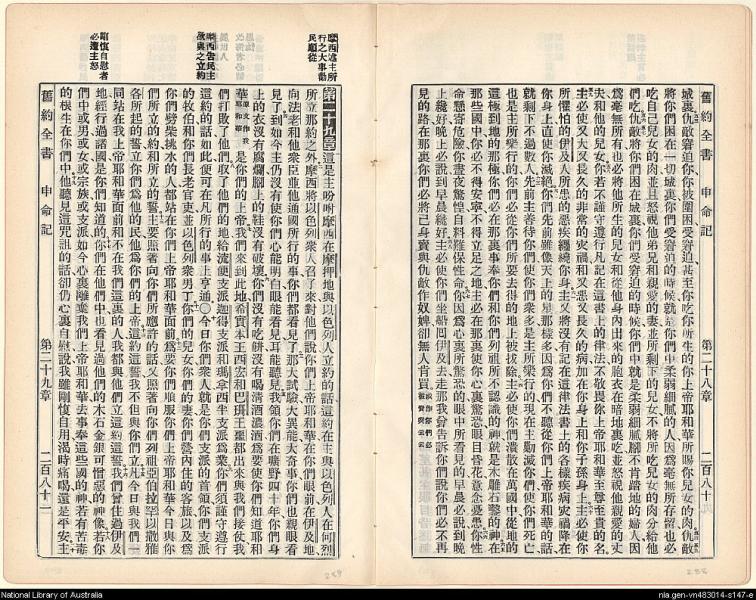 舊約全書 申命記 第二十八章 二百八十
城裏仇敵窘迫你你被圍困受窘迫甚至你吃你所生的你上帝耶和華所賜你兒女的肉仇敵
將你們困在一切城裏你們受窘迫的時候就是你們中柔弱細膩的人因爲毫無所存留也必
吃自己兒女的肉並且怒視他弟兄和親愛的妻並所剩下的兒女不將所吃兒女的肉分給他
們吃仇敵將你們困在城裏你們受窘迫的時候你們中就是柔弱細膩不肯踏地的婦人因
爲毫無所有也必將他所生的兒女和從他身內出來的胞衣在暗地裏吃並怒視他親愛的丈
夫和他的兒女你若不謹守遵行凡記在這書上的律法不敬畏你上帝耶和華至尊至貴的名
主必使又大又長久的非常的灾禍和又惡又長久的病加在你身上和你子孫身上主必使你
所懼怕的伊及人所患的惡疾纏繞你身主又將沒有記在這律法書上的各樣疾病灾禍降在
你身上直使你滅絕你們先前雖像天上的星那樣多因爲你們不聽從你們上帝耶和華的話
就剩下不過數人先前主善待你們使你們衆多是主所樂行的現在主勦滅你們使你們死亡
也是主所樂行的你們必從你們所要去得的地上被拔除主必使你們潰散在萬國中從地的
這極到地的那極你們必在那裏事奉你們和你們列祖所不認識的神就是木雕石鑿的神在
那些國中你必不得安寧不得立足之地主必在那裏使你心裏驚恐眼目昏花意念憂愁你性
命懸寄危險你晝夜驚惶自料難保性命你因爲心裏所驚恐的眼中所看見的早晨必說到晚
上纔好晚上必說到早晨纔好主必使你們坐船回伊及去走那我曾告訴你們說你們必不再
見的路在那裏你們必將己身賣與仇敵作奴婢卻無人肯買
摩西述主所
行之大事勸
民順從
摩西告民主
欲與之立約
剛愎自慰者
必遭主怒
第二十九章 這是主吩咐摩西在摩押地與以色列人立約的話這約在主與以色列人在何烈
所立那約之外摩西將以色列衆人召了來對他們說你們上帝耶和華在你們眼前在伊及地
向法老和他衆臣並他通國所行的事你們都看見了那大試驗大異能大奇事你們也親眼看
見了到如今主仍沒有使你們心能明白眼能看見耳能聽見我領你們在曠野四十年你們身
上的衣沒有腐爛腳上的鞋沒有破壞你們沒有吃餅沒有喝清酒濃酒爲要使你們知道耶和
華是你們的上帝我們來到此地希實本王西宏和巴珊王噩都出來與我們接仗我
們打敗了他們取了他們的地給流便支派迦得支派和瑪拿西半支派爲業你們須謹守遵行
這約的話如此便可在凡所行的事上亨通○今日你們衆人就是你們支派的首領你們支派
的牧伯和你們長老官吏並以色列衆男丁你們的兒女你們的妻你們營內住的客旅以及爲
你們劈柴挑水的人都站在你們上帝耶和華面前爲要你們順服你們上帝耶和華今日與你
們所立的約和所立的誓主要照著向你們所應許的話又照著向你們列祖亞伯拉罕以撒雅
各所起的誓立你們爲他的民他爲你們的上帝這約這誓我不但與你們立凡今日與我們
同站在我上帝耶和華面前和不在我們這裏的人我都與他們立這約這誓我們曾住過伊及
地經行過諸國是你們知道的你們在他們中也看見過他們的木石金銀可憎惡的神像若你
們中或男或女或宗族或支派如今心裏離棄我們上帝耶和華去事奉這些國的神若有苦毒
的根生在你們中他聽見這咒詛的話卻仍心裏自慰說我雖剛愎自用渴時痛喝還是平安主
舊約全書 申命記 第二十九章 二百八十二
National Library of Australia
nla.gen-vn483014-s147-e